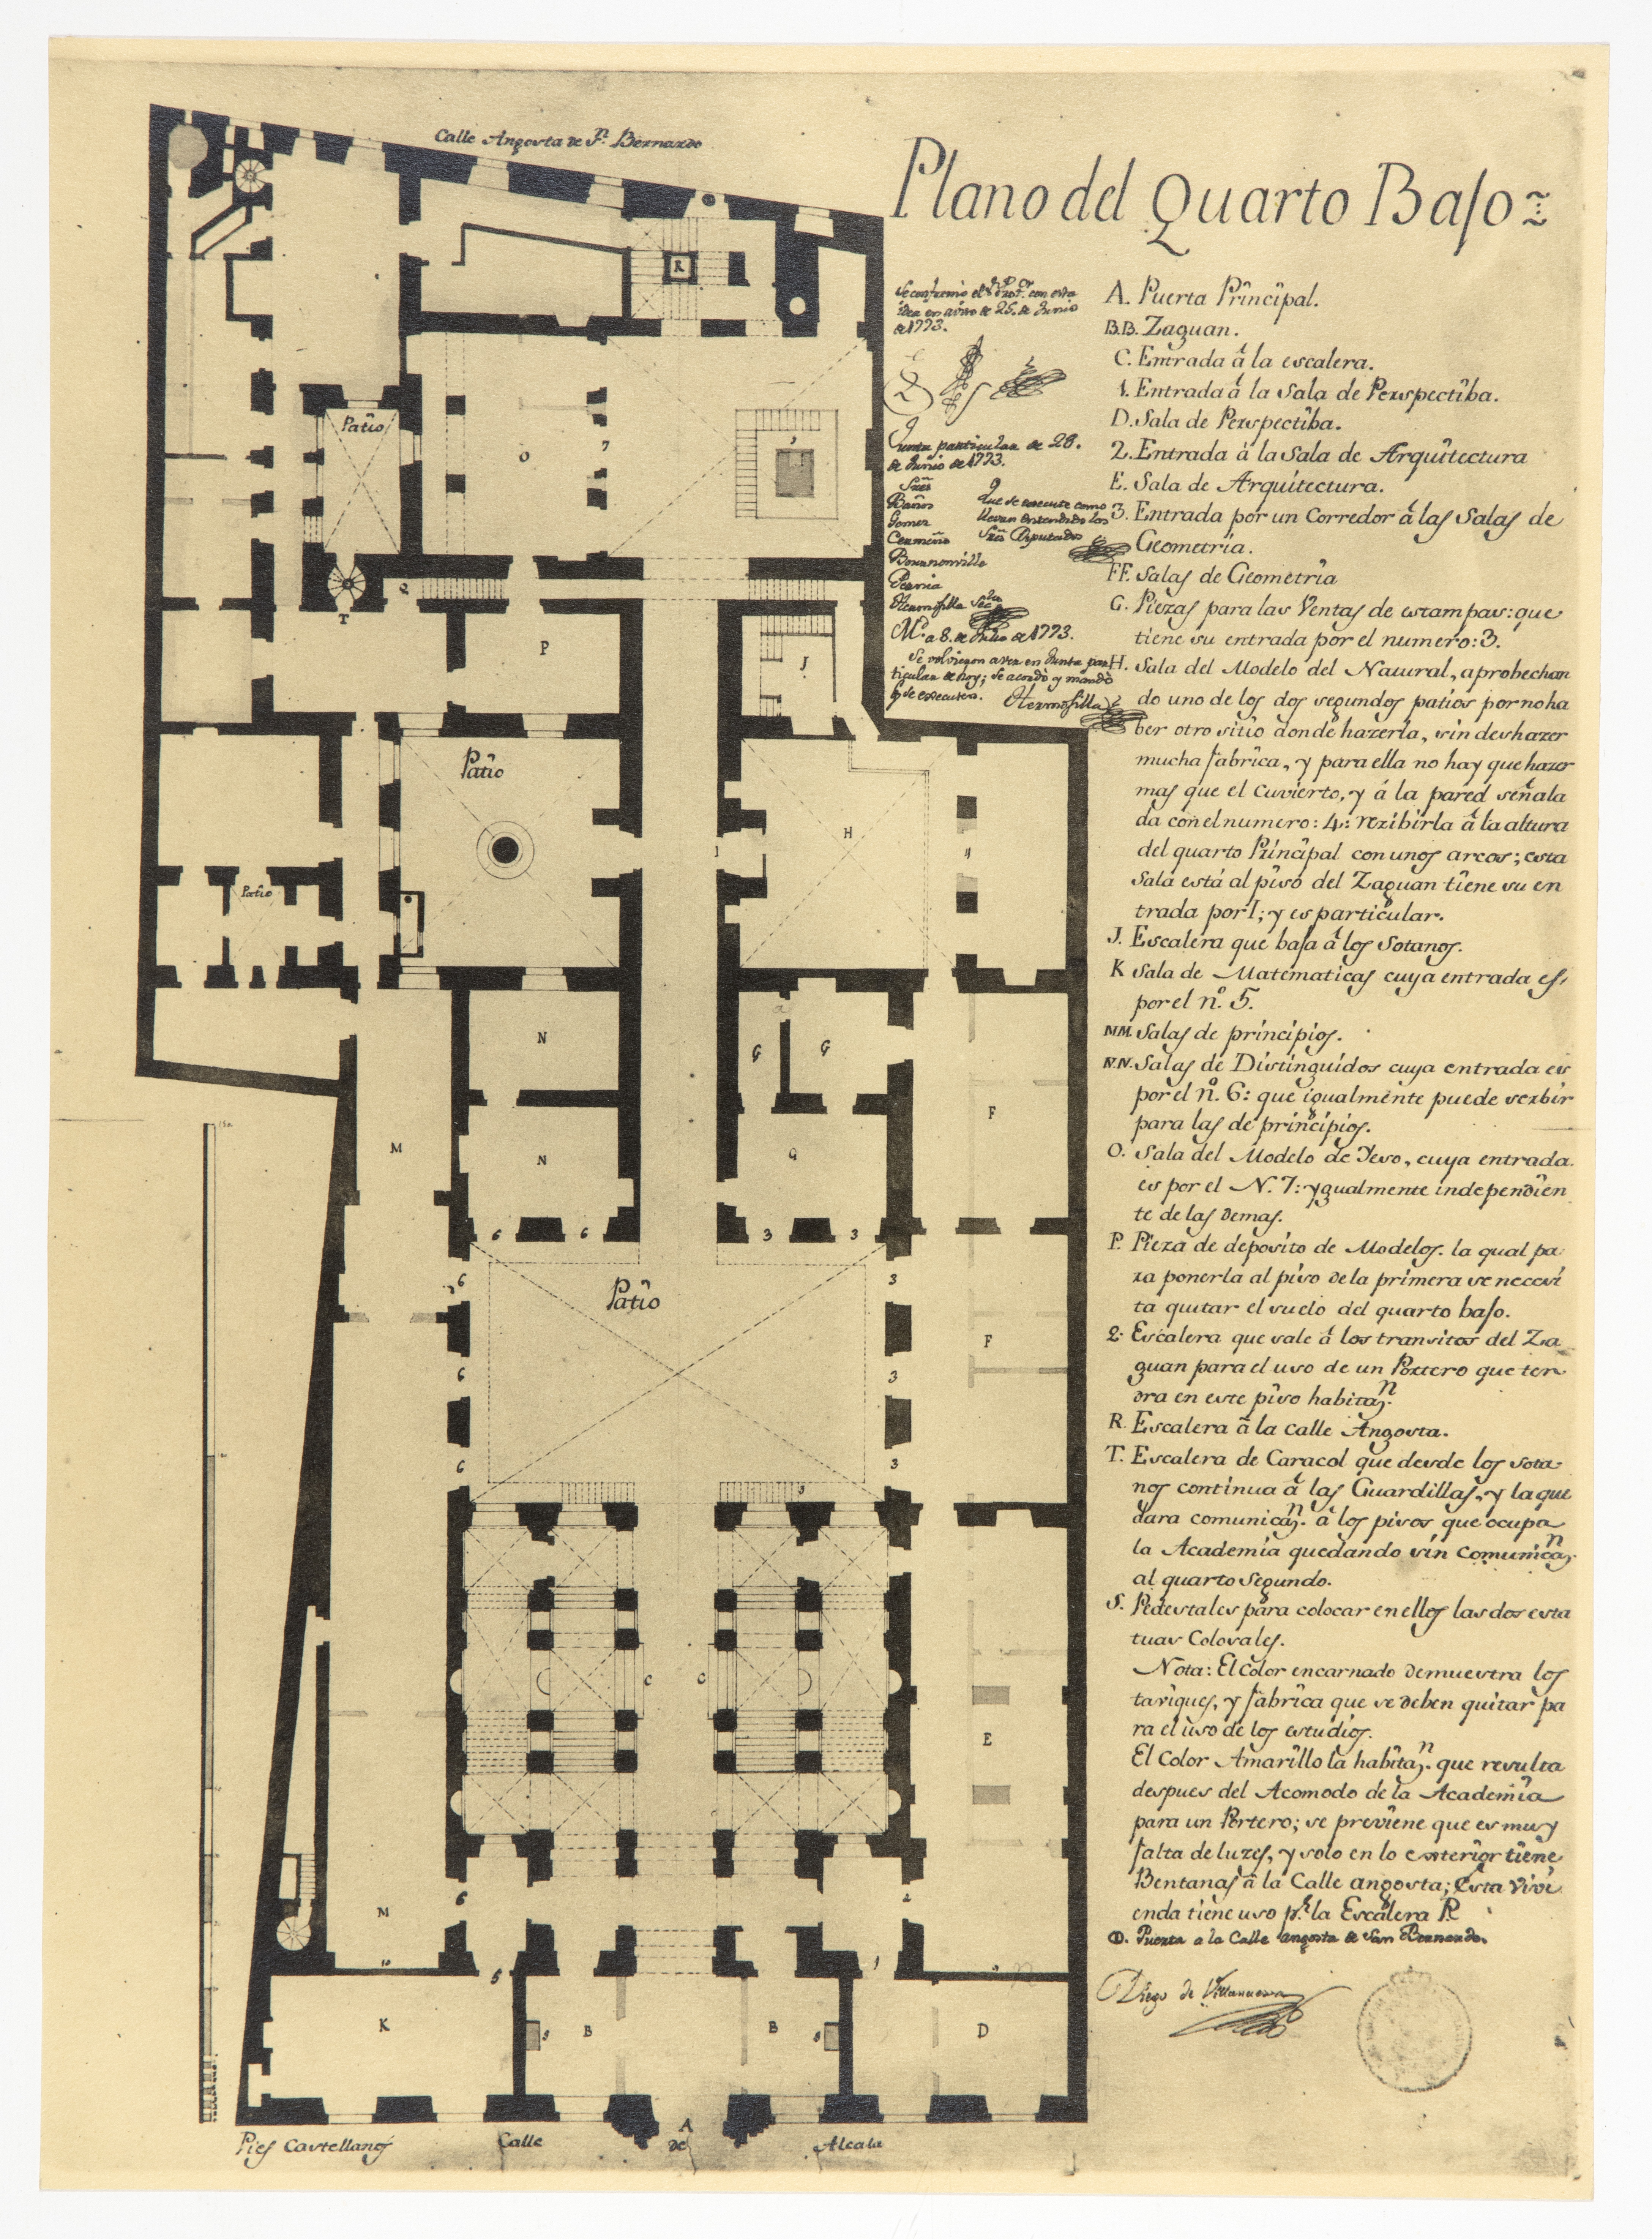 Calle Angosta de Sn. Bernardo
Plano del Quarto Baſo
Se conformó el Sr. Prot.or con esta
idea en aviso de 25. de Junio
de 1773.
Junta particular de 28.
de Junio de 1773.
Sres
Baños
Gomez
Cermeño
Bournonville
Pernia
Hermosilla Srio
Que se execute como
llevan entendido los
Sres Diputados
Md. a 8. de Julio de 1773.
Se volvieron a ver en Junta par
ticular de hoy; se acordó y mandó
q se executen. Hermosilla
A. Puerta Principal.
B.B. Zaguan.
C. Entrada á la escalera.
1. Entrada á la Sala de Perspectiba.
D. Sala de Perspectiba.
2. Entrada á la Sala de Arquitectura
E. Sala de Arquitectura.
3. Entrada por un Corredor á las Salas de
Geometria.
FF. Salas de Geometria
G. Piezas para las Ventas de estampas: que
tiene su entrada por el numero: 3.
H. Sala del Modelo del Natural, aprobechan
do uno de los dos segundos patios por no ha
ber otro sitio donde hazerla, sin deshazer
mucha fabrica, y para ella no hay que hazer
mas que el Cuvierto, y á la pared señala
da con el numero: 4: rezibirla á la altura
del quarto Principal con unos arcos; esta
Sala está al piso del Zaguan tiene su en
trada por I; y es particular.
J. Escalera que baſa á los Sotanos.
K Sala de Matematicas cuya entrada es,
por el nº. 5.
MM. Salas de principios.
N.N. Salas de Distinguidos cuya entrada es
por el nº. 6: que igualmente puede serbir
para las de principios.
O. Sala del Modelo de Yeso, cuya entrada
es por el N. 7: ygualmente independien
te de las demas.
P. Pieza de deposito de Modelos. la qual pa
ra ponerla al piso de la primera se necesi
ta quitar el suelo del quarto baſo.
Q. Escalera que sale á los transitos del Za
guan para el uso de un Portero que ten
dra en este piso habitazn.
R. Escalera á la calle Angosta.
T. Escalera de Caracol que desde los sota
nos continua á las Guardillas, y la que
dara comunicazn. á los pisos que ocupa
la Academia quedando sin comunicazn.
al quarto Segundo.
S. Pedestales para colocar en ellos las dos esta
tuas Colosales.
Nota: El Color encarnado demuestra los
tabiques, y fabrica que se deben quitar pa
ra el uso de los estudios.
El Color Amarillo la habitazn. que resulta
despues del Acomodo de la Academia
para un Portero; se previene que es muy
falta de luzes, y solo en lo exterior tiene
Bentanas á la Calle angosta; Esta Vivi
enda tiene uso pr. la Escalera R
O. Puerta a la Calle angosta de San Bernardo.
Diego de Villanueva
R
Patio
O
7
Q
T
P
J
Patio
H
Patio
N
G
G
M
F
N
G
6
6
3
3
Patio
6
3
F
6
3
6
3
C
C
E
M
6
2
5
1
K
S
B
B
S
D
Pies Castellanos
Calle
A
de
Alcala